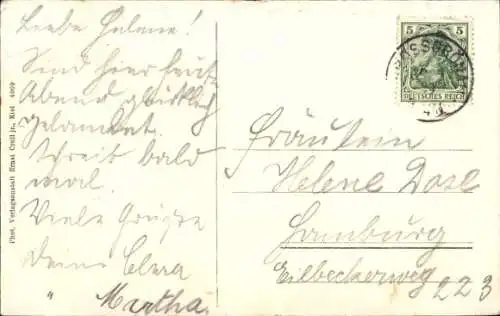 Liebe Helene!
Sind hier heute
Abend glücklich
gelandet.
Schreib bald
mal.
Viele Grüße
Deine Clara
" Martha.
Phot. Verlagsanstalt Ernst Crull jr., Kiel 4009
5 5
DEUTSCHES REICH
Fräulein
Helene Dose
Hamburg
Eilbeckerweg 223